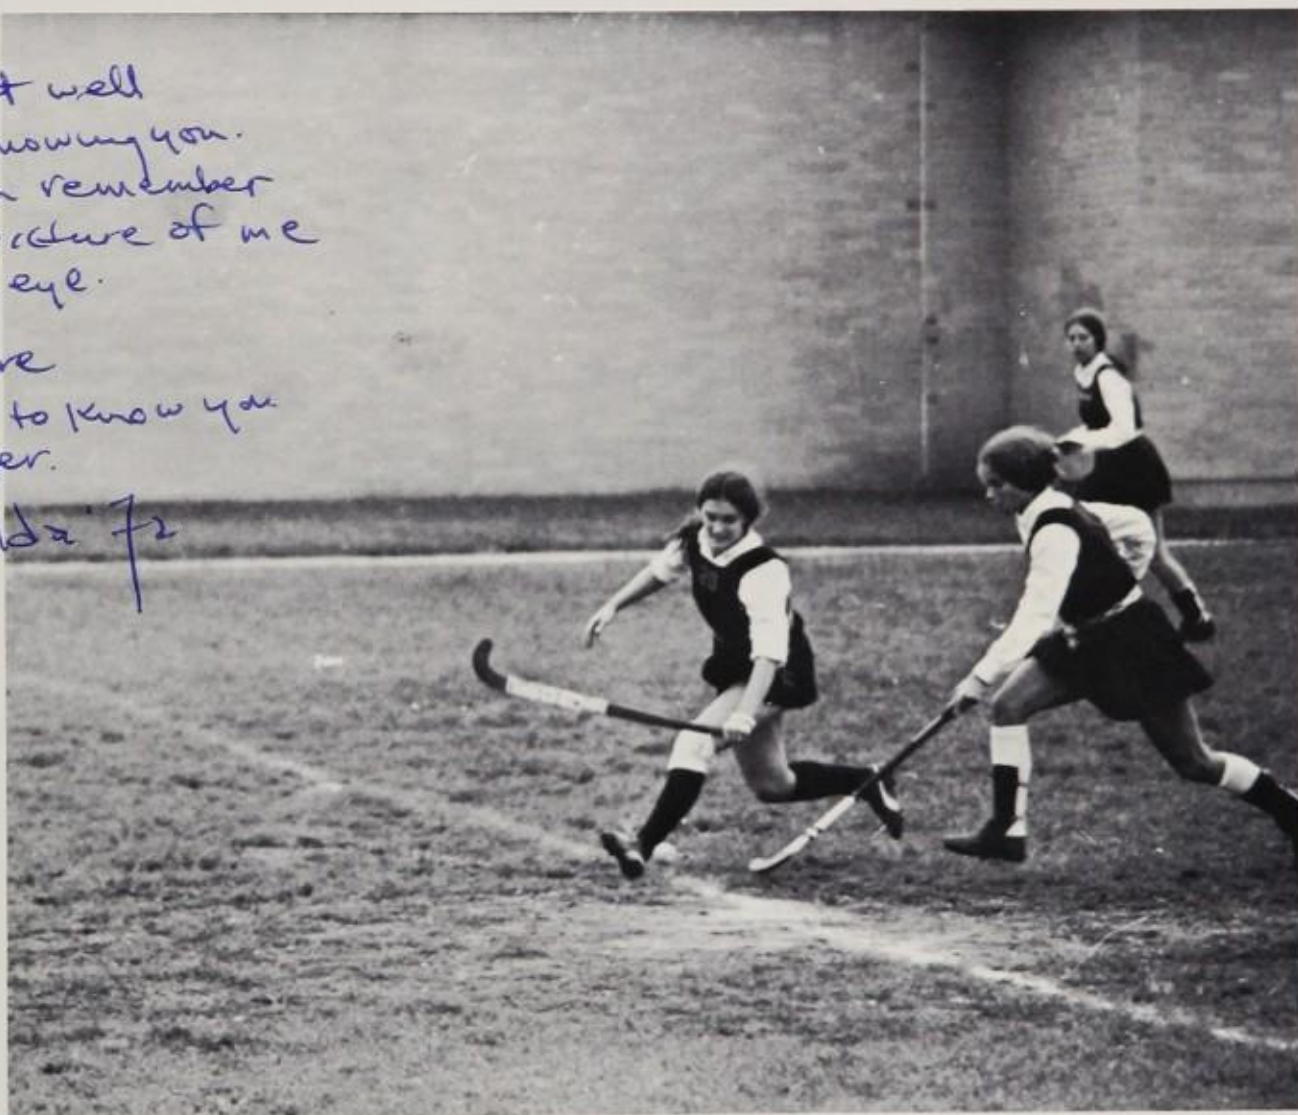 t well
nowing you.
n remember
icture of me
eye.
re
to know you
er.
da '72